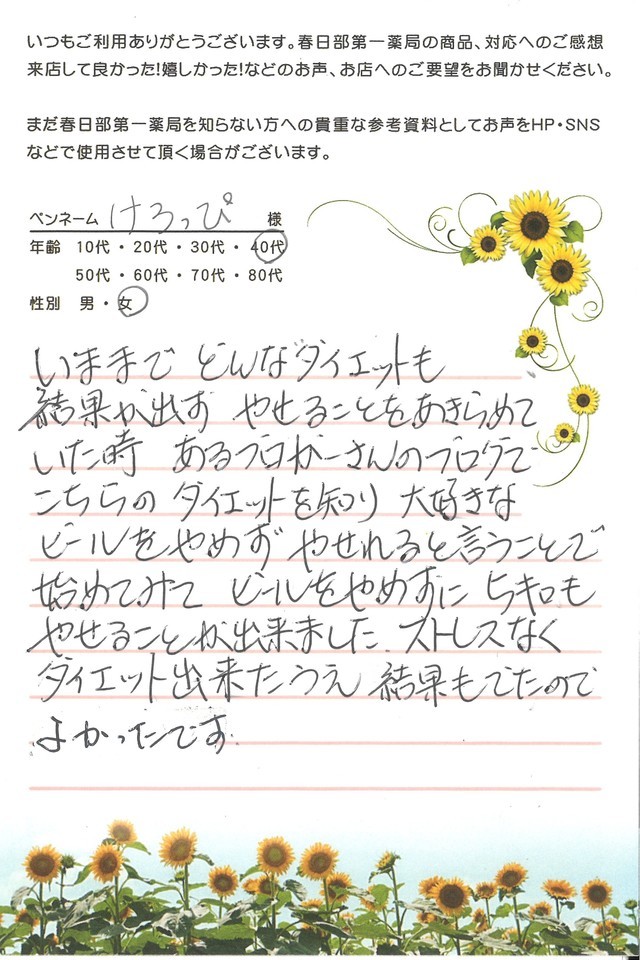 いつもご利用ありがとうございます。春日部第一薬局の商品、対応へのご感想
来店して良かった!嬉しかった!などのお声、お店へのご要望をお聞かせください。
まだ春日部第一薬局を知らない方への貴重な参考資料としてお声をHP・SNS
などで使用させて頂く場合がございます。
ペンネーム けろっぴ 様
年齢 10代・20代・30代・40代
50代・60代・70代・80代
性別 男・女
いままで どんなダイエットも
結果が出ず やせることをあきらめて
いた時 あるブロガーさんのブログで
こちらの ダイエットを知り 大好きな
ビールをやめず やせれると言うことで
始めてみて ビールをやめずに 5キロも
やせることが出来ました。ストレスなく
ダイエット出来たうえ 結果もでたので
よかったです。